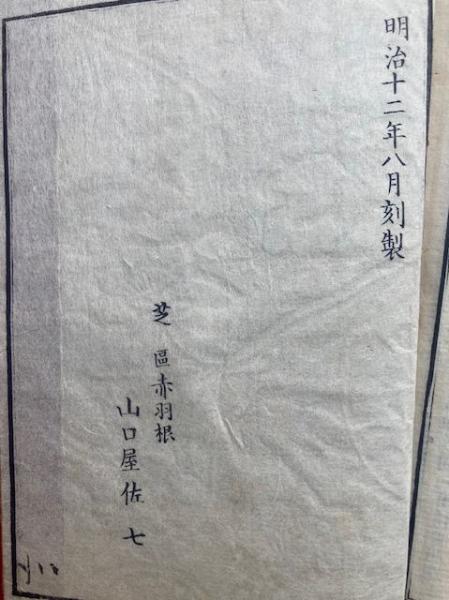 明治十二年八月刻製
芝區赤羽根
山口屋佐七